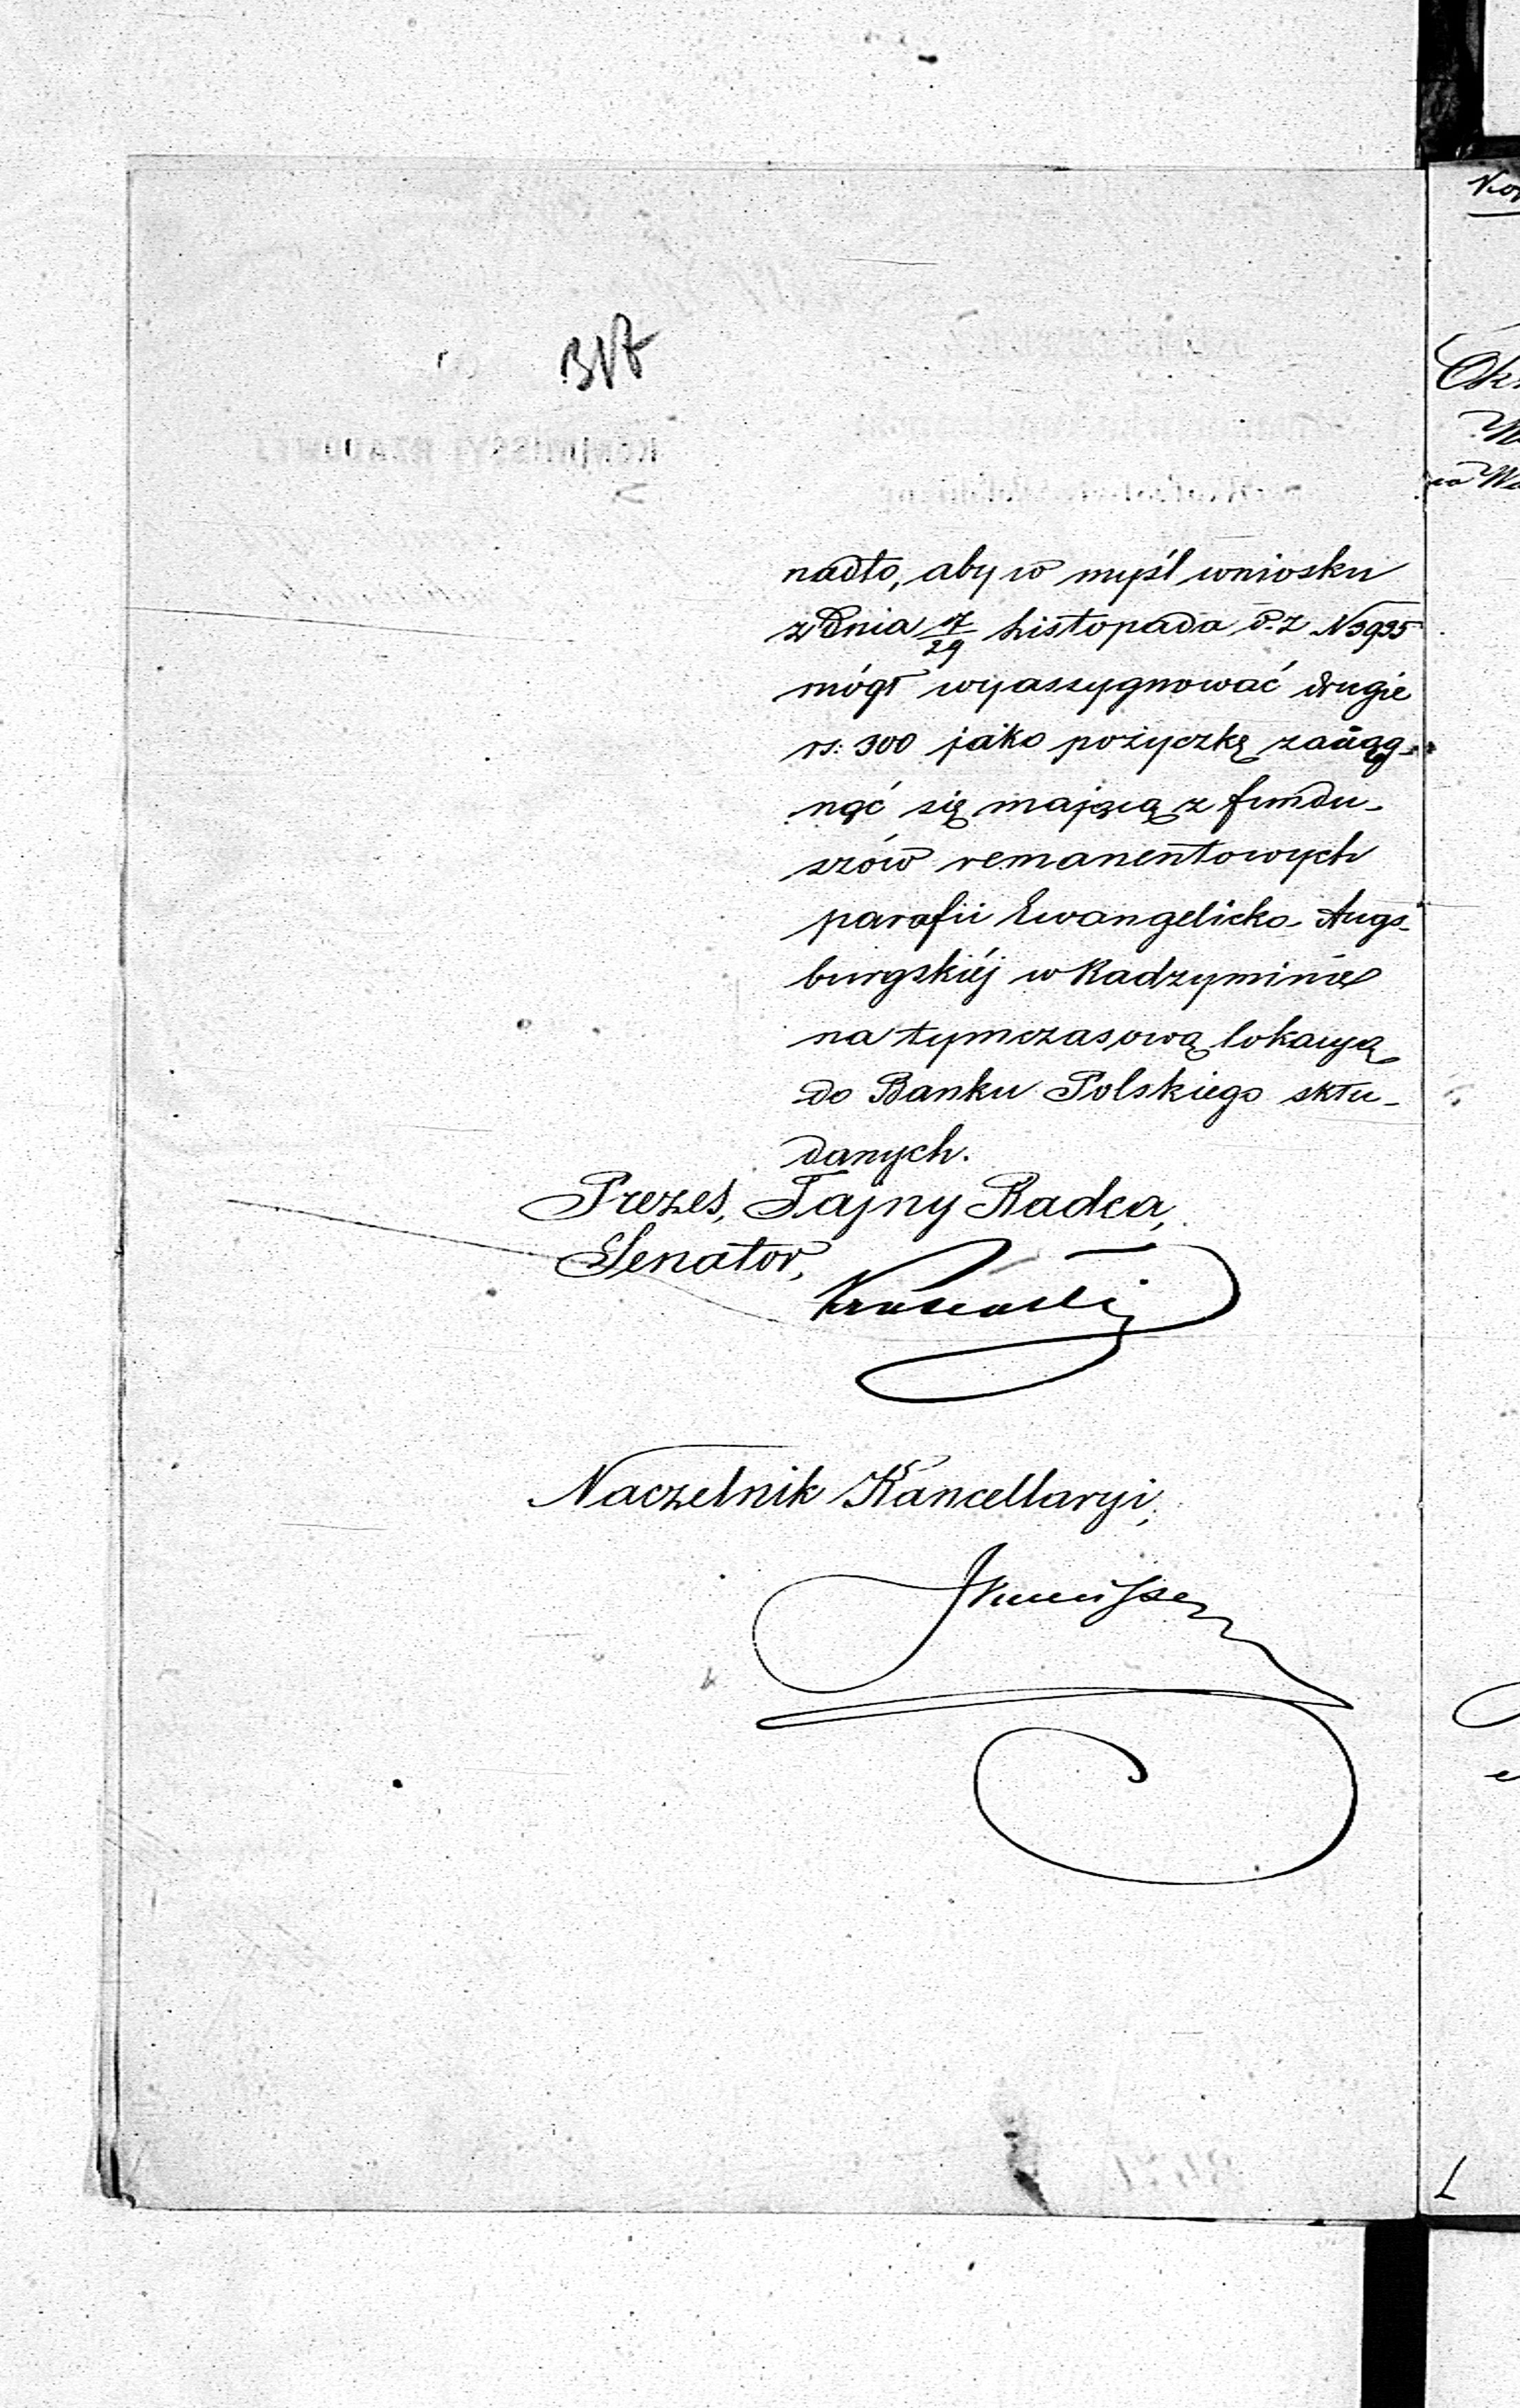 nadto, aby w myśl wniosku
z dnia 17/29 Listopada r. z. N 3935
mógł wyassygnować drugie
rs: 300 jako pożyczkę zaciąg-
nąć się mającą z fundu-
szów remanentowych
parafii Ewangelicko-Augs-
burgskiéj w Radzyminie
na tymczasową lokacyą
do Banku Polskiego skła-
danych.
Prezes, Tajny Radca,
Senator,
Naczelnik Kancellaryi,